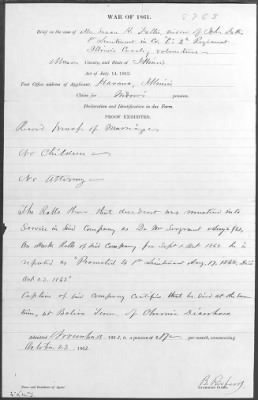 WAR OF 1861.
Brief in the case of Mrs Susan R. widow of John
1st Lieutenant in Co. 2d Regiment
Illinois Cavalry volunteers
Mason County, and State of Illinois
Act of July 14, 1862.
Post Office address of Applicant: Havana, Illinois
Claim for Widow's pension.
Declaration and Identification in due Form.
PROOF EXHIBITED.
proof of Marriage
No Children
No Attorney
The Rolls show that decedent was mustered into
Service in said Company as Sergeant
On Muster Rolls of said Company for Sept & Oct 1862 he is
reported as "Promoted to 1st Lieutenant Aug. 17, 1862, Died
Oct 23, 1862"
Captain of said Company Certifies that he died at the
time, at Bolivar Tenn. of Chronic Diarrhoea
Admitted November 186 , to a pension of $17 per month, commencing
October 23, 1862.